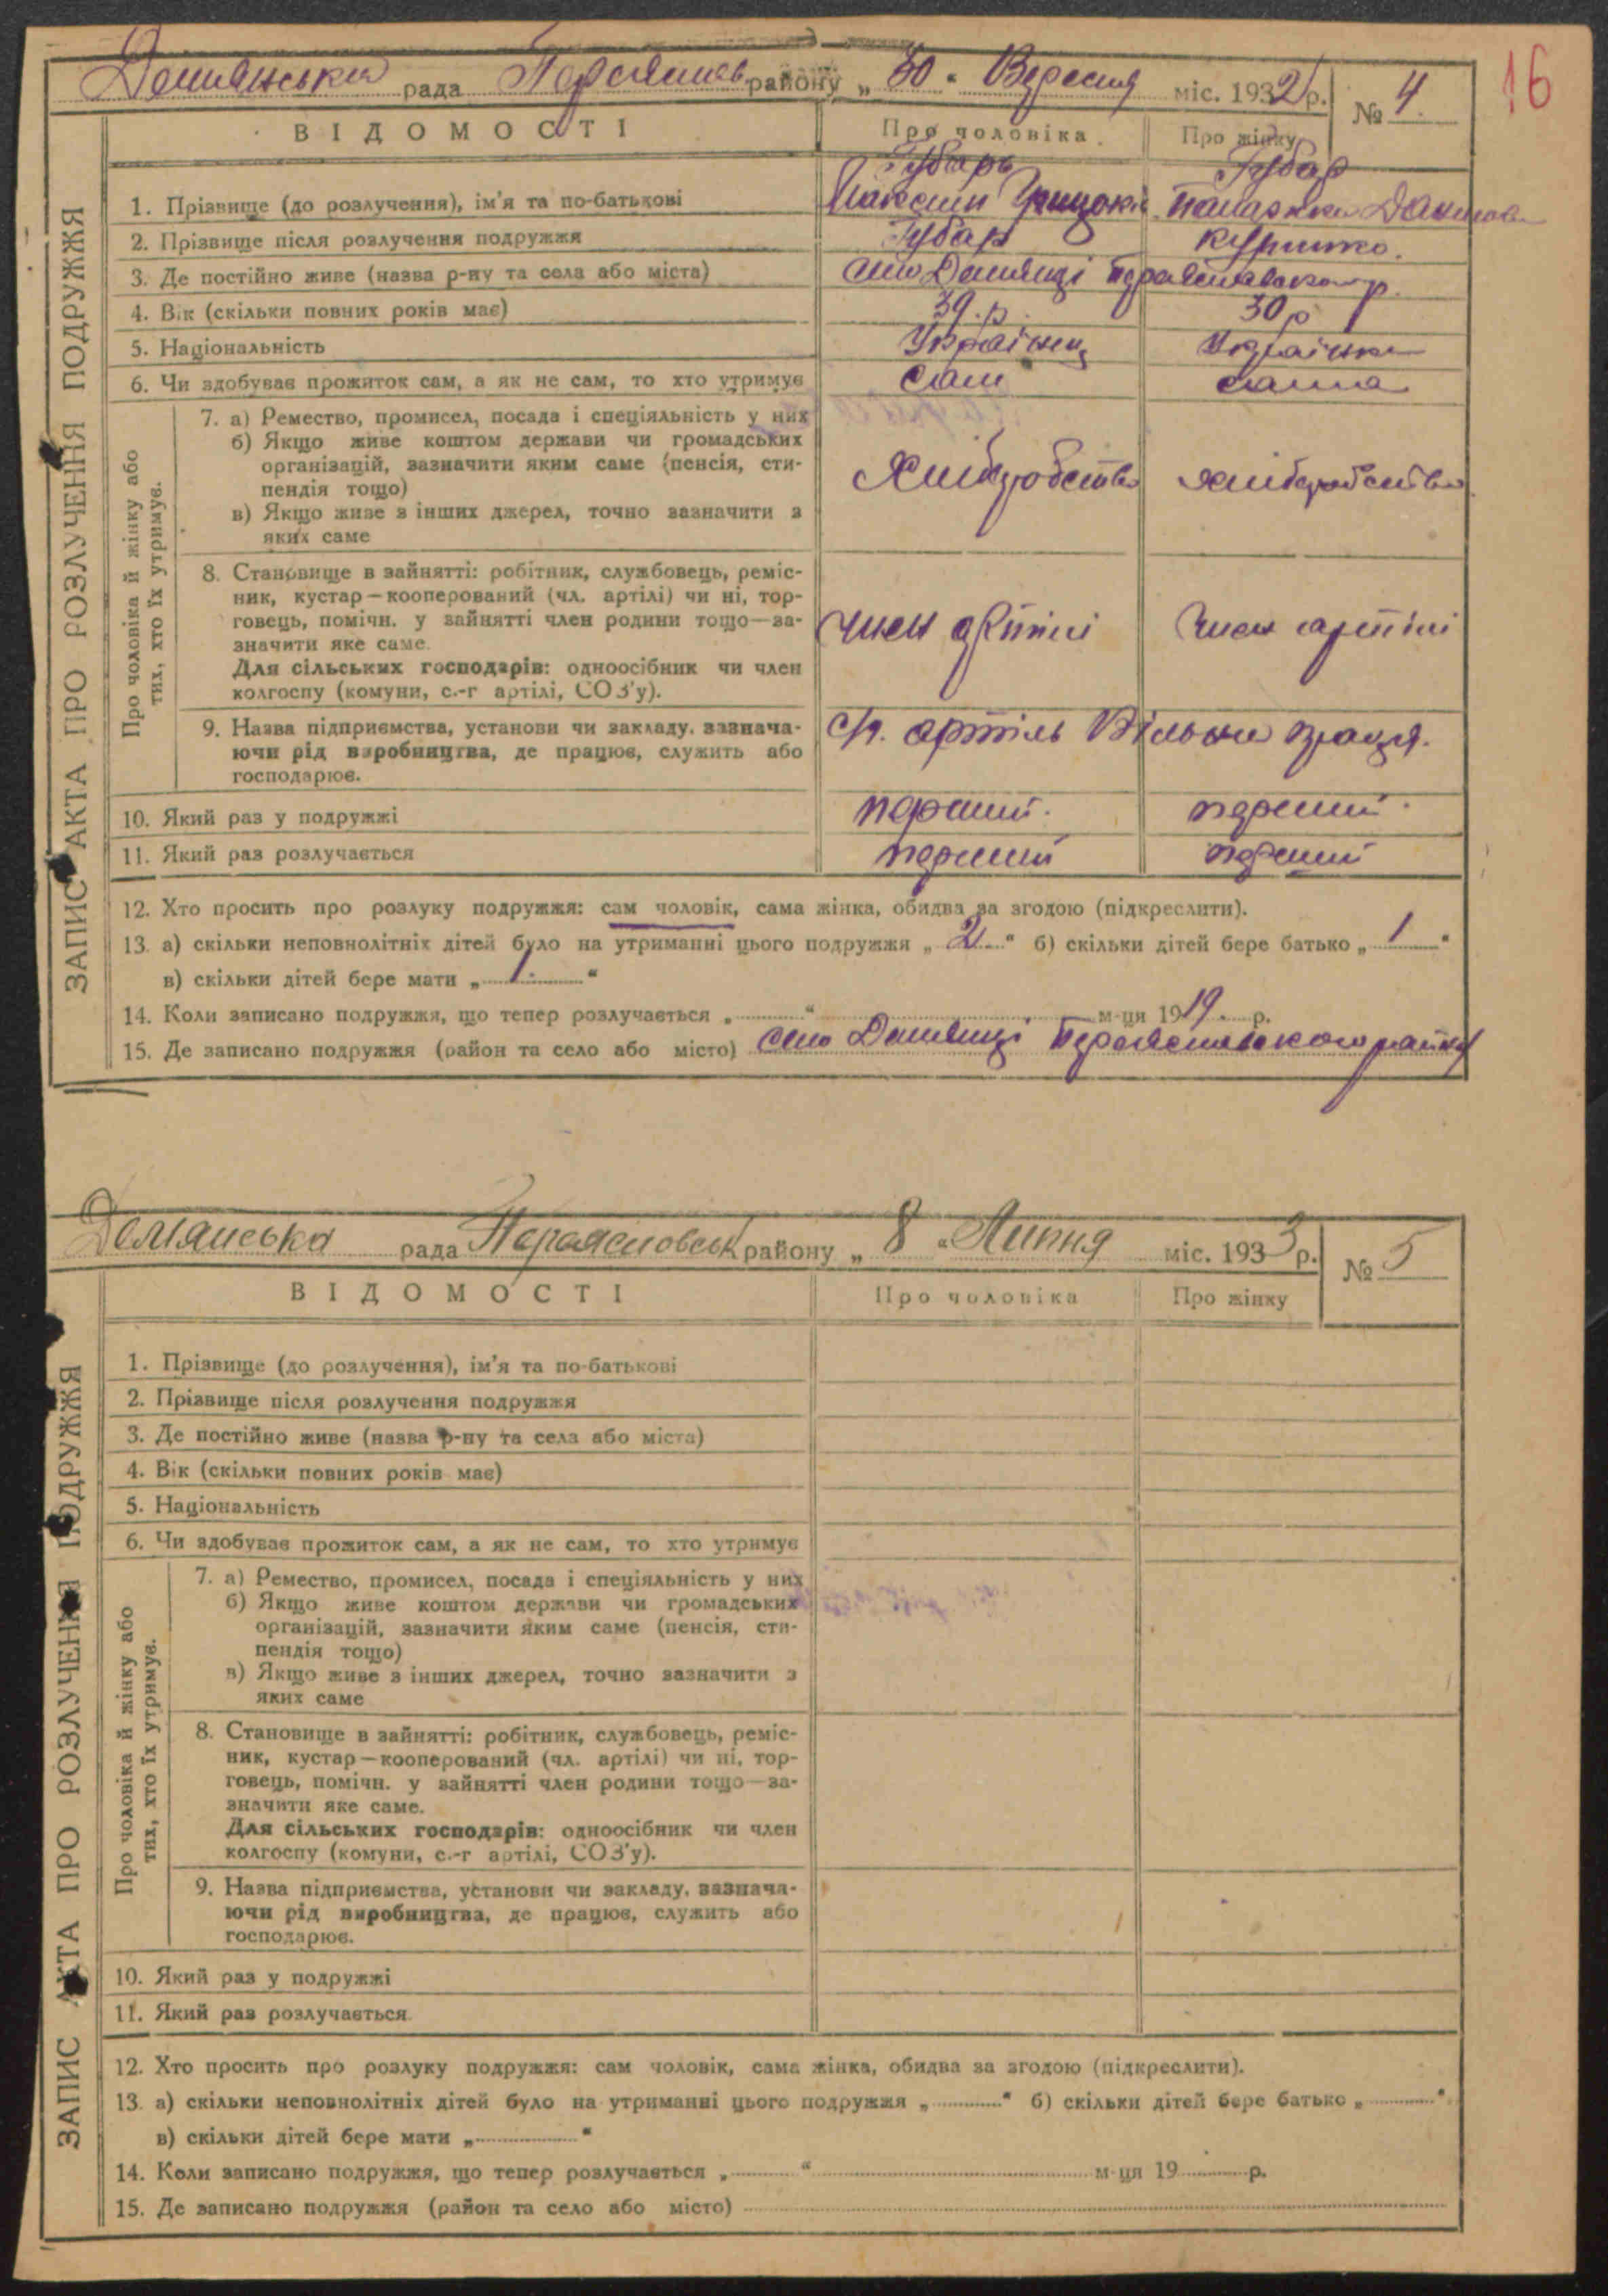 16
Демянська рада Переяслав. району „30“ Вересня міс. 1932 р. № 4.
ВІДОМОСТІ Про чоловіка Про жінку
Губарь Губар
1. Прізвище (до розлучення), ім'я та по-батькові Максим
2. Прізвище після розлучення подружжя Губар
3. Де постійно живе (назва р-ну та села або міста) село Демянці
4. Вік (скільки повних років має) 39.р. 30 р
5. Національність Українец Українка
6. Чи здобував прожиток сам, а як не сам, то хто утримує сам сама
Про чоловіка й жінку або тих, хто їх утримує.
7. а) Ремество, промисел, посада і спеціяльність у них
б) Якщо живе коштом держави чи громадських
організацій, зазначити яким саме (пенсія, сти-
пендія тощо) Хліборобство хліборобство
в) Якщо живе з інших джерел, точно зазначити з
яких саме
8. Становище в зайнятті: робітник, службовець, реміс-
ник, кустар—кооперований (чл. артілі) чи ні, тор-
говець, помічн. у зайнятті член родини тощо—за- член артілі член артілі
значити яке саме.
Для сільських господарів: одноосібник чи член
колгоспу (комуни, с.-г артілі, СОЗ'у).
9. Назва підприємства, установи чи закладу, зазнача- артіль Вільна праця.
ючи рід виробництва, де працює, служить або
господарює.
10. Який раз у подружжі перший. перший.
11. Який раз розлучається перший перший
ЗАПИС АКТА ПРО РОЗЛУЧЕННЯ ПОДРУЖЖЯ
12. Хто просить про розлуку подружжя: сам чоловік, сама жінка, обидва за згодою (підкреслити).
13. а) скільки неповнолітніх дітей було на утриманні цього подружжя „2“ б) скільки дітей бере батько „1“
в) скільки дітей бере мати „1.“
14. Коли записано подружжя, що тепер розлучається „ “ м-ця 1919. р.
15. Де записано подружжя (район та село або місто) село Демянці Переяславского району
Демянська рада району „8“ Липня міс. 1933 р. № 5
ВІДОМОСТІ Про чоловіка Про жінку
1. Прізвище (до розлучення), ім'я та по-батькові
2. Прізвище після розлучення подружжя
3. Де постійно живе (назва р-ну та села або міста)
4. Вік (скільки повних років має)
5. Національність
6. Чи здобував прожиток сам, а як не сам, то хто утримує
Про чоловіка й жінку або тих, хто їх утримує.
7. а) Ремество, промисел, посада і спеціяльність у них
б) Якщо живе коштом держави чи громадських
організацій, зазначити яким саме (пенсія, сти-
пендія тощо)
в) Якщо живе з інших джерел, точно зазначити з
яких саме
8. Становище в зайнятті: робітник, службовець, реміс-
ник, кустар—кооперований (чл. артілі) чи ні, тор-
говець, помічн. у зайнятті член родини тощо—за-
значити яке саме.
Для сільських господарів: одноосібник чи член
колгоспу (комуни, с.-г артілі, СОЗ'у).
9. Назва підприємства, установи чи закладу, зазнача-
ючи рід виробництва, де працює, служить або
господарює.
10. Який раз у подружжі
11. Який раз розлучається
ЗАПИС АКТА ПРО РОЗЛУЧЕННЯ ПОДРУЖЖЯ
12. Хто просить про розлуку подружжя: сам чоловік, сама жінка, обидва за згодою (підкреслити).
13. а) скільки неповнолітніх дітей було на утриманні цього подружжя „ “ б) скільки дітей бере батько „ “
в) скільки дітей бере мати „ “
14. Коли записано подружжя, що тепер розлучається „ “ м-ця 19 р.
15. Де записано подружжя (район та село або місто)